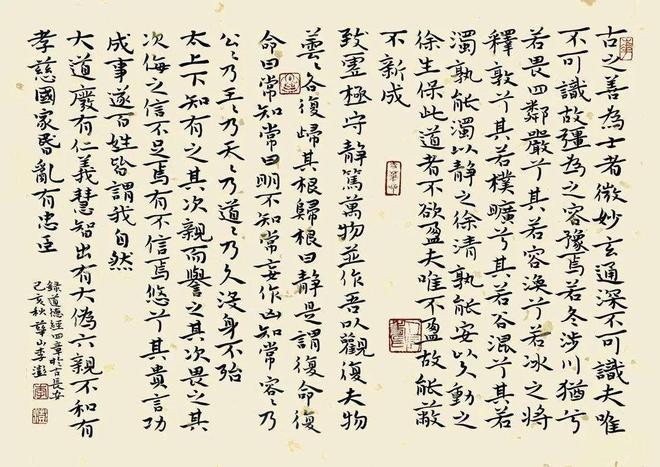 古之善為士者微妙玄通深不可識夫唯
不可識故彊為之容豫焉若冬涉川猶兮
若畏四鄰嚴兮其若容渙兮若冰之將
釋敦兮其若樸曠兮其若谷混兮其若
濁孰能濁以靜之徐清孰能安以久動之
徐生保此道者不欲盈夫唯不盈故能蔽
不新成
致虛極守靜篤萬物並作吾以觀復夫物
蕓〻各復歸其根歸根曰靜是謂復命復
命曰常知常曰明不知常妄作凶知常容〻乃
公〻乃王〻乃天〻乃道〻乃久沒身不殆
太上下知有之其次親而譽之其次畏之其
次侮之信不足焉有不信焉悠兮其貴言功
成事遂百姓皆謂我自然
大道廢有仁義慧智出有大偽六親不和有
孝慈國家昏亂有忠臣
錄道德經四章於古長安
己亥秋華山李